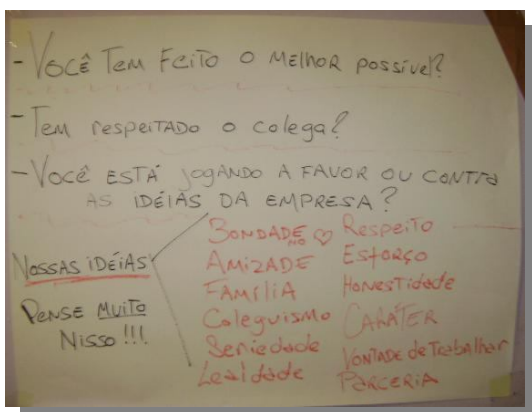 - Você Tem Feito o Melhor possível?
- Tem respeitado o colega?
- Você está jogando a favor ou contra
as idéias da empresa?
Nossas idéias
Pense muito
Nisso!!!
Bondade no ♡
Amizade
Família
Coleguismo
Seriedade
Lealdade
Respeito
Esforço
Honestidade
Caráter
Vontade de Trabalhar
Parceria